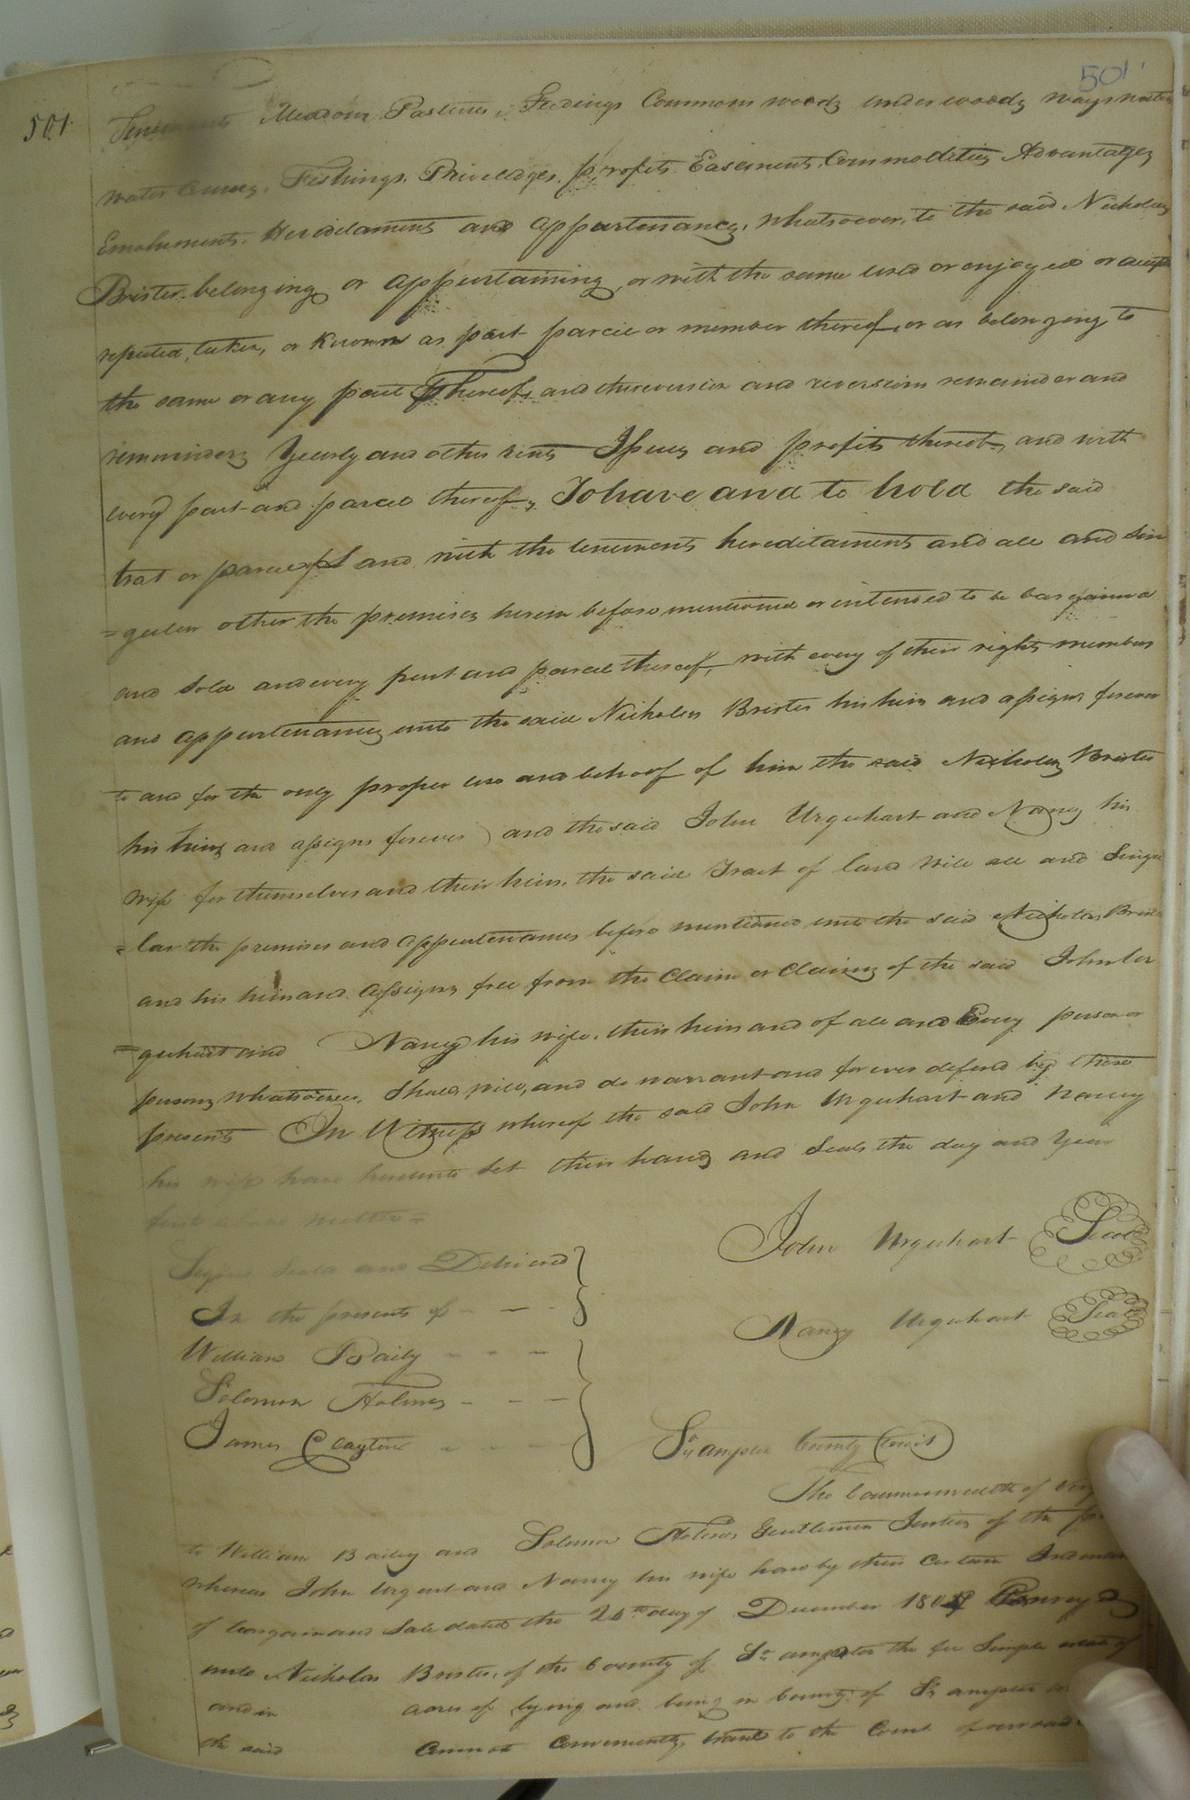 501
501
Tenements Meadow Pastures, Feedings Commons woods under woods ways waters
water Courses, Fishings, Priveledges, profits Easements, Commodities Advantages
Emoluments, Hereditaments and appurtenances, whatsoever, to the said Nicholas
Brister belonging or appurtaining, or with the same used or enjoyed or accepted
reputed, taken, or Known as part parcie or member thereof, or as belonging to
the same or any part Thereof, and the reversion and reversions remainder and
remainders Yearly and other rents Issues and profits thereof, and with
every part and parcel thereof, To have and to hold the said
trat or parcel of L and with the tenements hereditaments and all and Sin
=gular other the premises herein before mentioned or intended to be bargained
and Sold and every part and parcel thereof, with every of their rights members
and appurtenances unto the said Nicholas Brister his heirs and assigns forever
to and for the only proper use and behoof of him the said Nicholas Brister
his heirs and assigns forever, and the said John Urquhart and Nancy his
wife for themselves and their heirs, the said Tract of land with all and Singu
=lar the premises and appurtenances before mentioned unto the said Nicholas Brister
and his heirs and Assigns free from the Claim or Claims of the said John Ur
=quhart and Nancy his wife, their heirs and of all and Every person or
persons whatsoever, Shall, will, and do warrant and forever defend by these
presents In Witness whereof the said John Urquhart and Nancy
his wife have hereunto Set their hands and Seals the day and Year
first above written =
John Urquhart Seal
Signed Seald and Deliverd
In the presents of
Nancy Urquhart Seal
William Baily
Solomon Holmes
James Clayton
So ampton County (towit)
The Commonwealth of
to William Bailey and Solomon Holmes Gentlemen Justices of the
whereas John Urquart and Nancy his wife have by their Certain
of bargain and Sale dated the day of December Convey
unto Nicholas Brister, of the County of So ampton the fee Simple estate of
and in acres of lying and being in County of So ampton
the said Cannot Conveniently, travel to the Court of our said